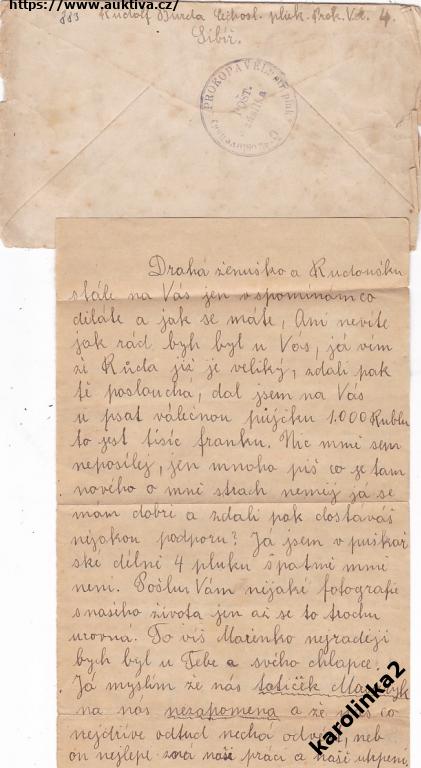 https://www.auktiva.cz/
883 Rudolf Burda Čchosl. pluk. Prok. Vel. 4.
Sibiř.
PROKOPA VELKÉHO
POŠT.
Drahá ženuško a Rudoušku
stále na Vás jen vspomínám co
diláte a jak se máte, Ani nevíte
jak rád bych byl u Vás, já vím
že Růda již je veliký, zdali pak
tě poslouchá, dal jsem na Vás
u psat válečnou půjčku 1.000 Rublu
to jest tisíc franku. Nic mni sem
neposílej, jen mnoho piš co je tam
nového o mni strach neměj já se
mám dobři a zdali pak dostáváš
nijakou podporu? Já jsem v puškař
ské dílně 4 pluku špatně mni
není. Pošlu Vám nijaké fotografie
s našiho života jen až se to trochu
urovná. To víš Mařenko nejraději
bych byl u Tebe a svého chlapce.
Já myslím že nás tatíček Masaryk
na nás nezapomena a že nás co
nejdříve odtud nechá odvest, neb
on nejlepe zná naši práci a naše utrpení.
karolinka2